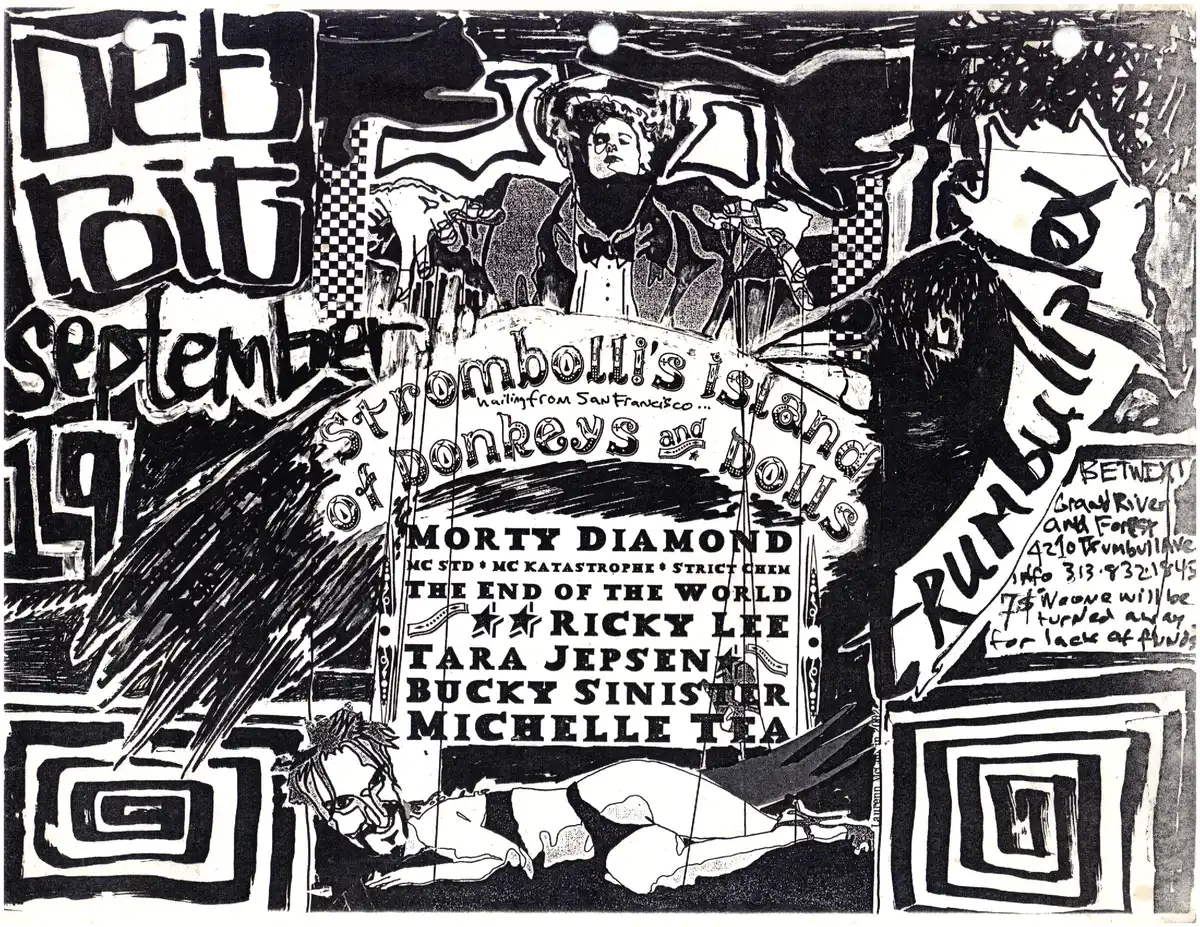 Detroit
september
19
Strombolli's island
hailing from San Francisco...
of Donkeys and Dolls
MORTY DIAMOND
MC STD • MC KATASTROPHE • STRICT CHEM
THE END OF THE WORLD
RICKY LEE
TARA JEPSEN
BUCKY SINISTER
MICHELLE TEA
TRUMBULLplex
BETWEXT
Grand River
and Forest
4210 Trumbull Ave
info 313.832.1845
7$ No one will be
turned away
for lack of funds